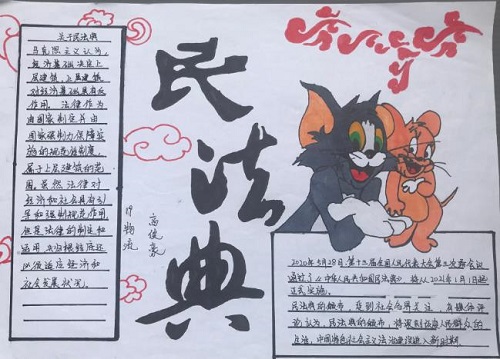 关于民法典
马克思主义认为,
经济基础决定上
层建筑,上层建筑
对经济基础具有反
作用。法律作为
由国家制定并由
国家强制力保障实
施的规范性制度,
属于上层建筑的范
围。虽然法律对
经济和社会具有引
导和强制规范作用,
但是法律的制定和
运用
以便适应经济和
社会发展状况。
民法典
物流
高俊豪
2020年5月28日,第十三届全国人民代表大会第三次会议
通过了《中华人民共和国民法典》将从2021年1月1日起
正式实施。
民法典的颁布,受到社会各界关注
认为,民法典的颁布,将深刻影响人民群众的
生活,中国特色社会主义法治建设进入新时期。